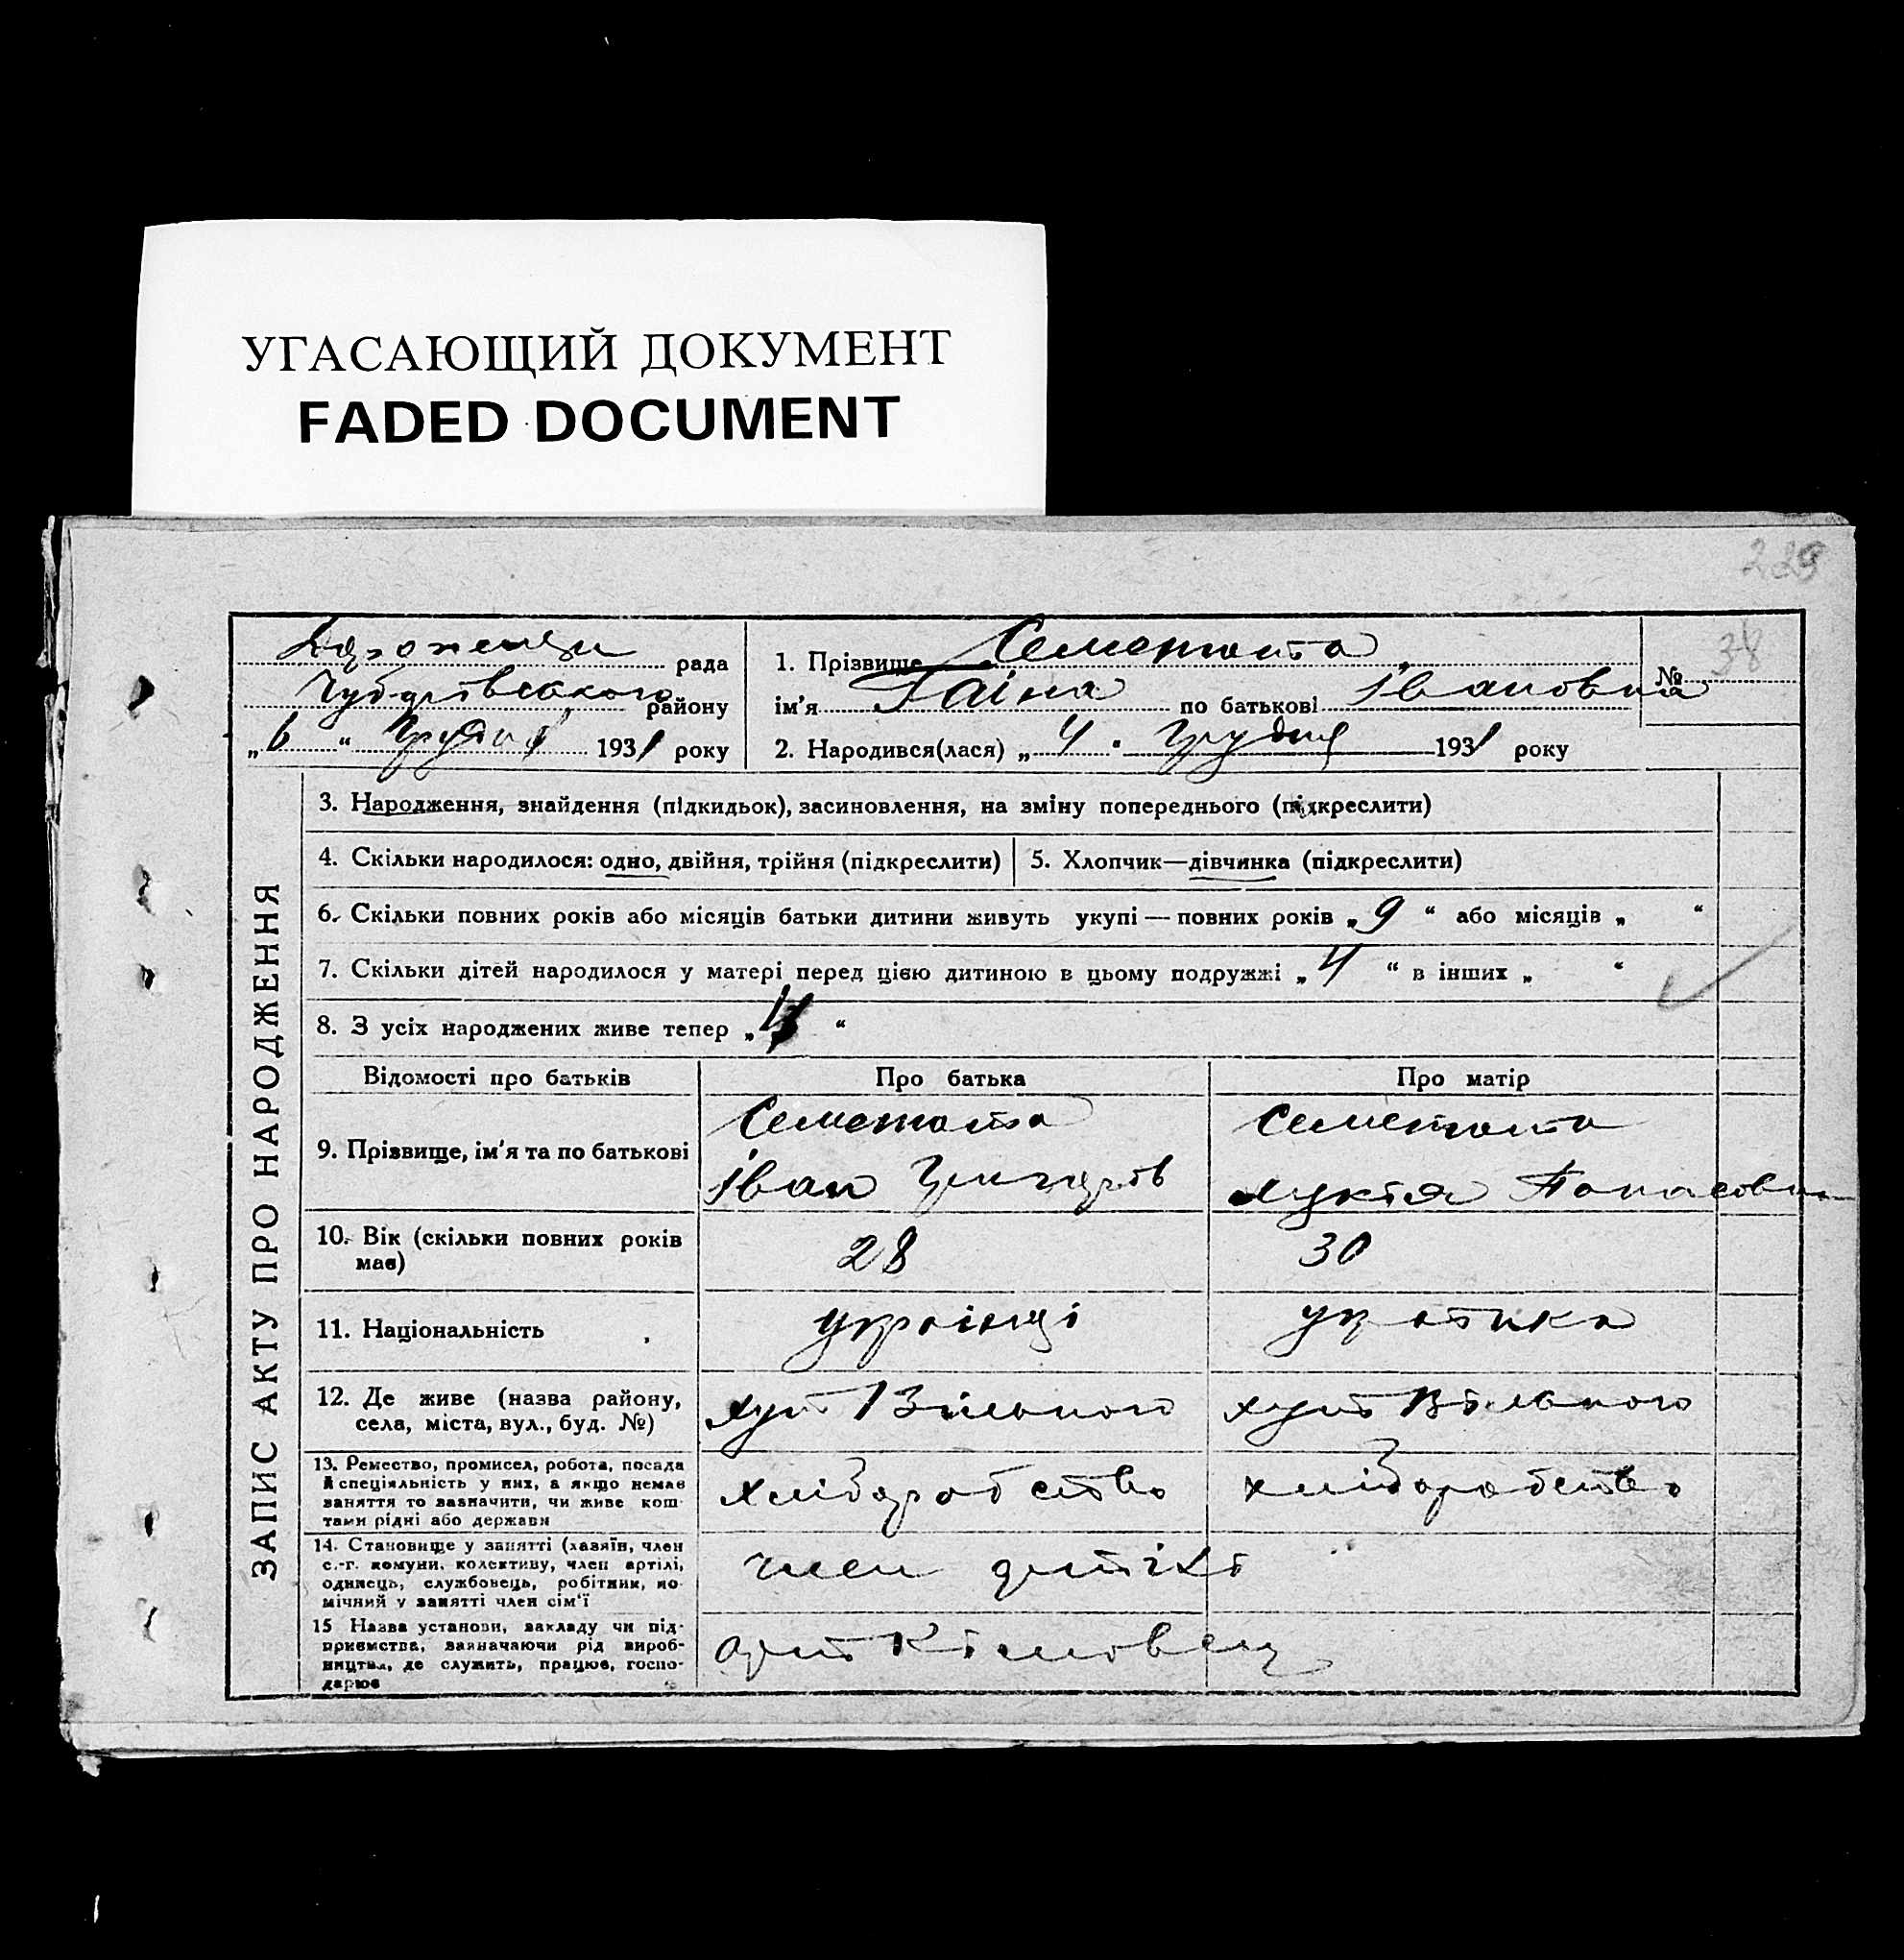 УГАСАЮЩИЙ ДОКУМЕНТ
FADED DOCUMENT
229
рада
района району
„6“ Грудня 1931 року
1. Прізвище
ім'я Гаіна по батькові Івановна
2. Народився(лася) „4“ Грудня 1931 року
№ 38
ЗАПИС АКТУ ПРО НАРОДЖЕННЯ
3. Народження, знайдення (підкидьок), засиновлення, на зміну попереднього (підкреслити)
4. Скільки народилося: одно, двійня, трійня (підкреслити)
5. Хлопчик—дівчинка (підкреслити)
6. Скільки повних років або місяців батьки дитини живуть укупі — повних років „9“ або місяців „ “
7. Скільки дітей народилося у матері перед цією дитиною в цьому подружжі „4“ в інших „ “
8. З усіх народжених живе тепер „ “
Відомості про батьків
Про батька
Про матір
9. Прізвище, ім'я та по батькові
Іван Григоров
Лукія Панасовна
10. Вік (скільки повних років
має)
28
30
11. Національність
українці
12. Де живе (назва району,
села, міста, вул., буд. №)
хут Вільного
хут Вільного
13. Ремество, промисел, робота, посада
й спеціяльність у них, а якщо немає
заняття то зазначити, чи живе кош-
тами рідні або держави
хліборобство
хліборобство
14. Становище у занятті (хазяїн, член
с.-г. комуни, колективу, член артілі,
одинець, службовець, робітник, по-
мічний у занятті член сім'ї
член артілі
"
15 Назва установи, закладу чи під-
приємства, зазначаючи рід вироб-
ництва, де служить, працює, госпо-
дарює
арт